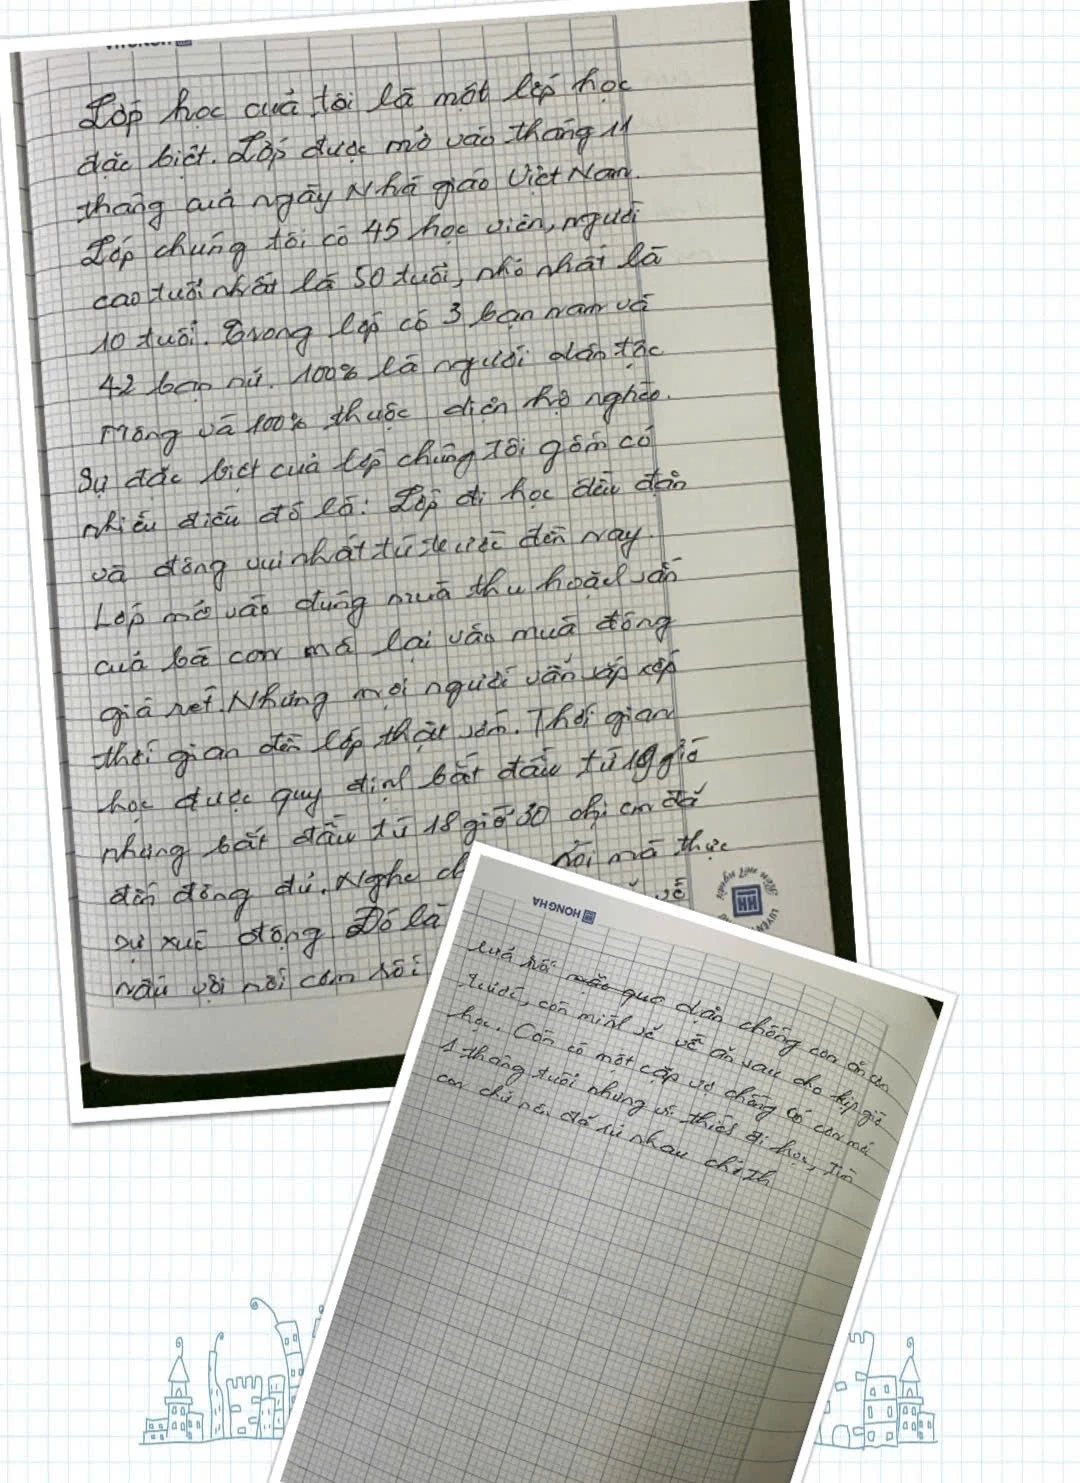 Lớp học của tôi là một lớp học
đặc biệt. Lớp được mở vào tháng 11
tháng của ngày Nhà giáo Việt Nam.
Lớp chúng tôi có 45 học viên, người
cao tuổi nhất là 50 tuổi, nhỏ nhất là
10 tuổi. Trong lớp có 3 bạn nam và
42 bạn nữ. 100% là người dân tộc
Mông và 100% thuộc diện hộ nghèo.
Sự đặc biệt của lớp chúng tôi gồm có
nhiều điều đó là: Lớp đi học đều đặn
và đông vui nhất từ trước đến nay.
Lớp mở vào đúng mùa thu hoạch sắn
của bà con mà lại vào mùa đông
giá rét. Nhưng mọi người vẫn sắp xếp
thời gian đến lớp thật sớm. Thời gian
học được quy định bắt đầu từ 19 giờ
nhưng bắt đầu từ 18 giờ 30 chị em đã
đến đông đủ. Nghe nói mà thực
sự xúc động Đó là về
nấu vội nồi cơm rồi
HONG HA
rồi quo dặn chồng con ăn cơm
trước, còn mình sẽ về ăn sau cho kịp giờ
học. Còn có một cặp vợ chồng có con mới
1 tháng tuổi nhưng vì thích đi học, tìm
con chữ nên đã rủ nhau